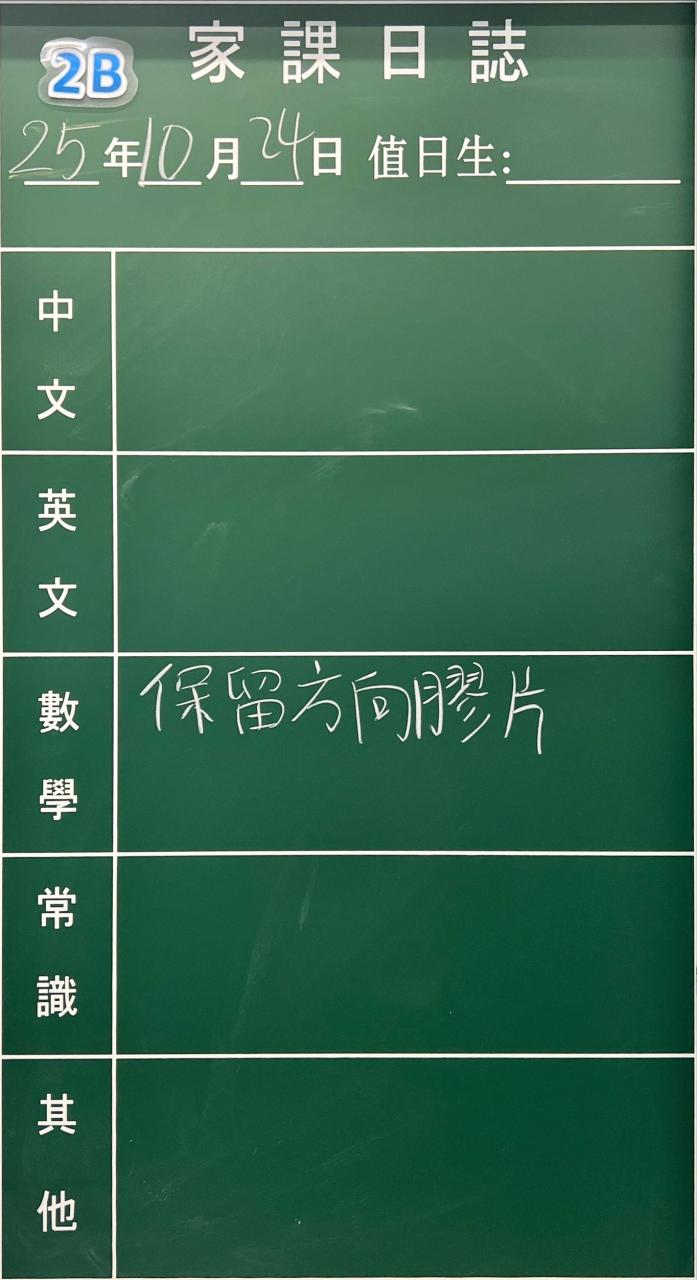 2B 家課日誌
25年10月24日 值日生:
中文
英文
數學 保留方向膠片
常識
其他